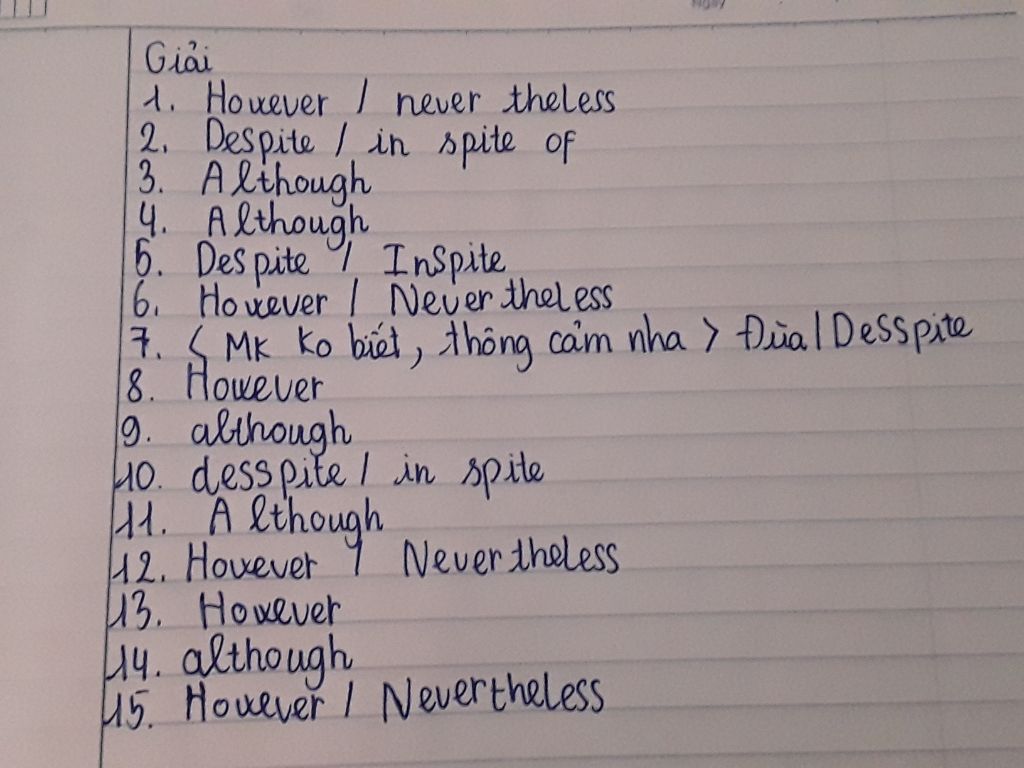 Giải
1. However / never theless
2. Despite / in spite of
3. Although
4. Although
5. Despite / Inspite
6. However / Nevertheless
7. < Mk ko biết, thông cảm nha > Đùa / Desspite
8. However
9. although
10. desspite / in spite
11. Although
12. However / Nevertheless
13. However
14. although
15. However / Nevertheless